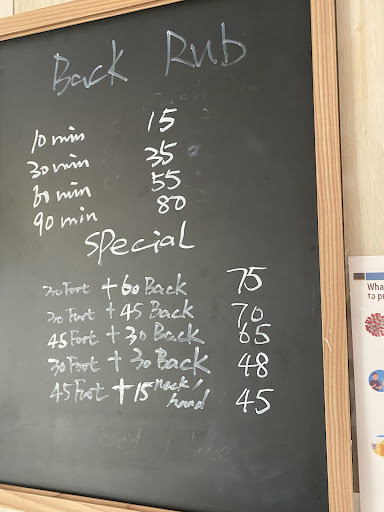 Back Rub
10 min 15
30 min 35
60 min 55
90 min 80
Special
30 Foot + 60 Back 75
30 Foot + 45 Back 70
45 Foot + 30 Back 65
30 Foot + 30 Back 48
45 Foot + 15 Neck/ 45
head
Wha
to p